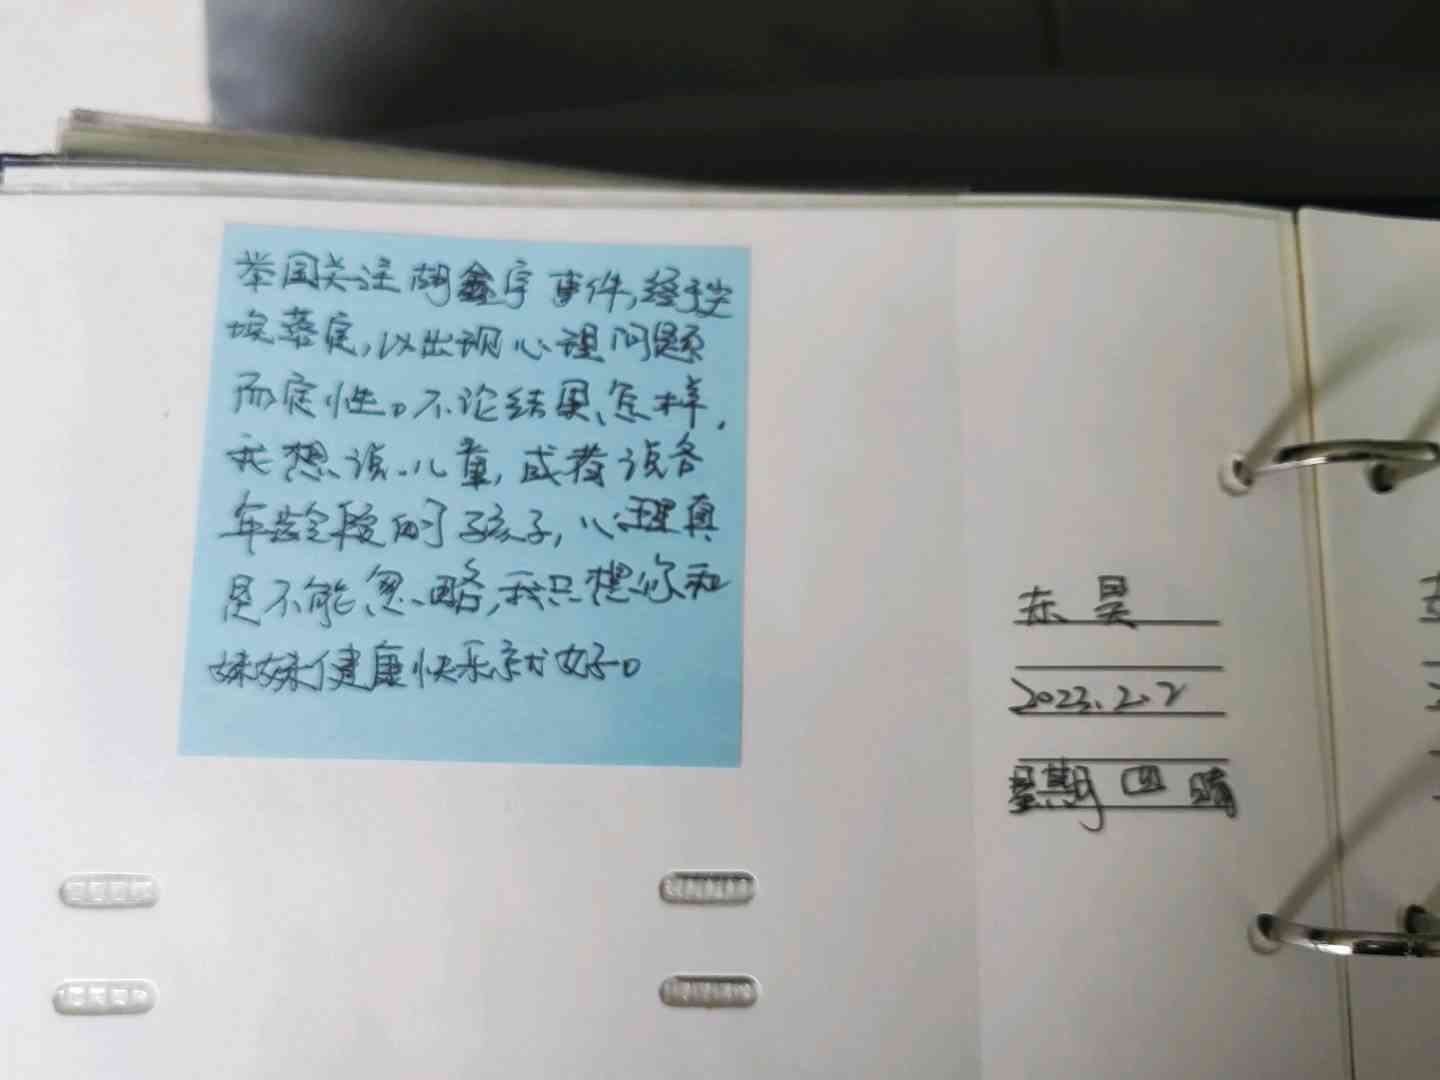 举国关注胡鑫宇事件,终于尘
埃落定,以出现心理问题
而定性。不论结果怎样,
我想说儿童,或者说各
年龄段的孩子,心理真
是不能忽略,我只想你和
妹妹健康快乐就好。
东昊
2023.2.2
星期四 晴